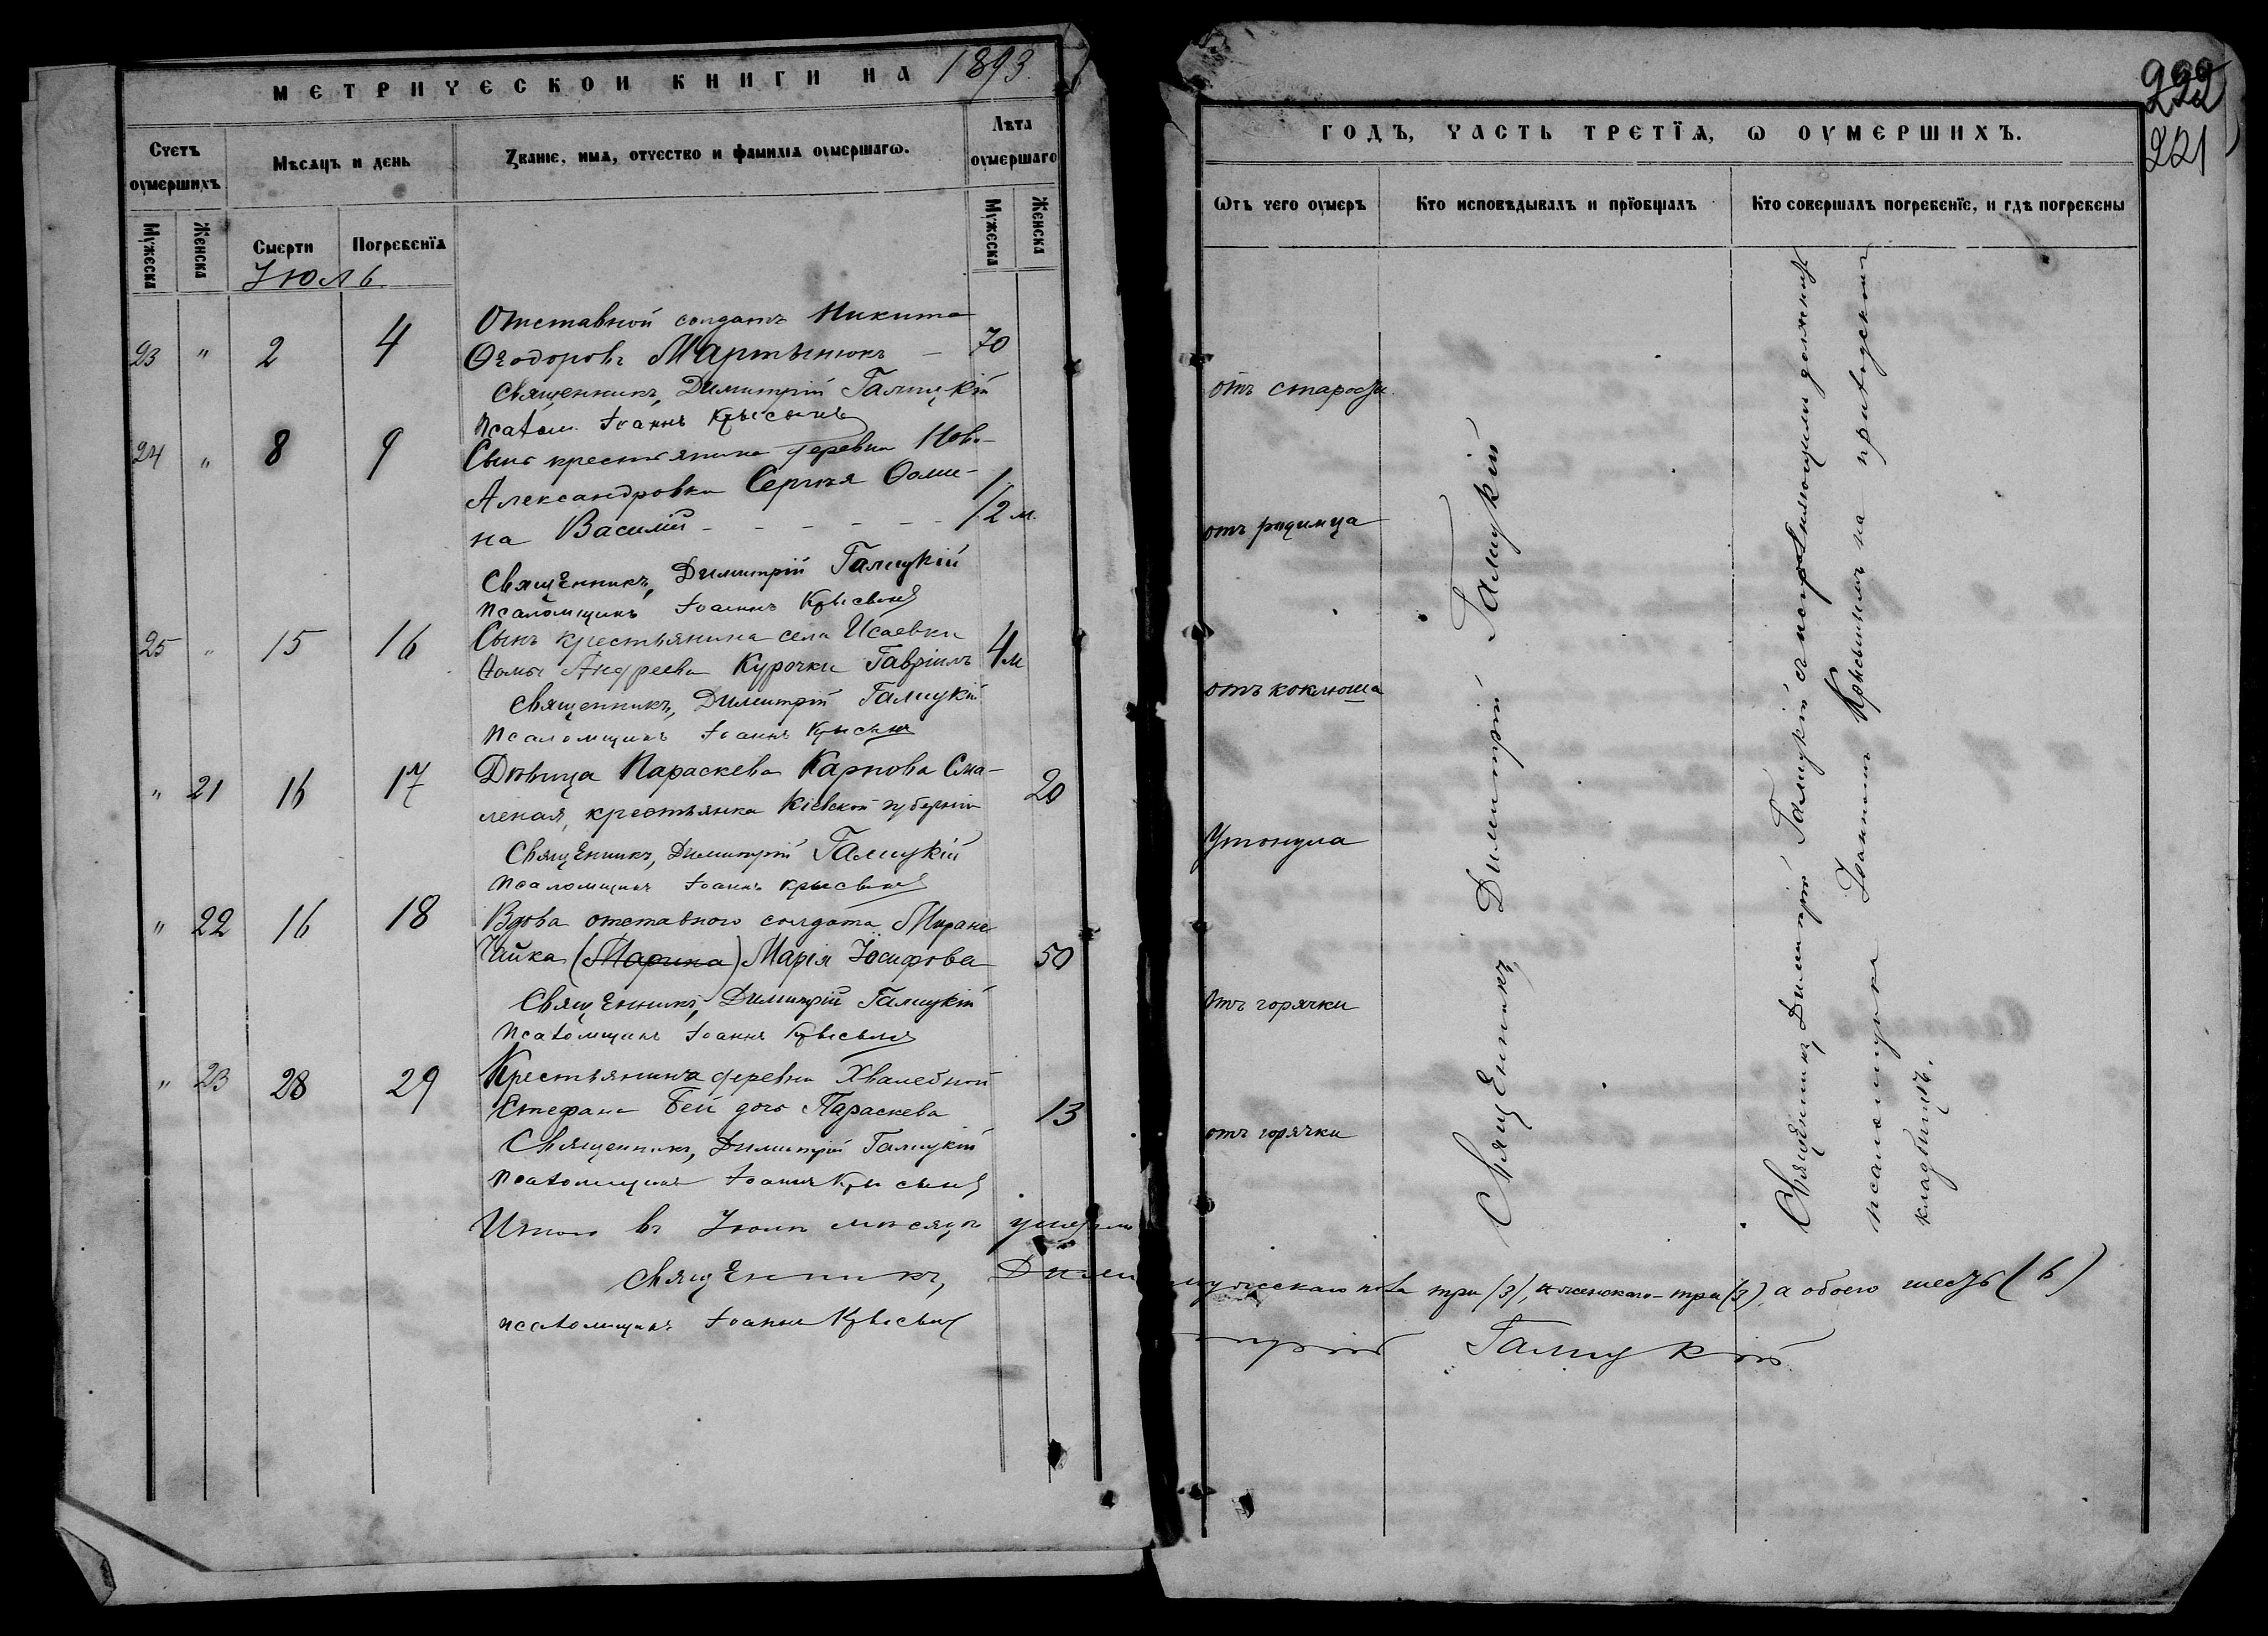 МЕТРИЧЕСКОЙ КНИГИ НА 1893
Счетъ оумершихъ
Мѣсяцъ и день
Званіе, имя, отчество и фамилія оумершагѡ.
Лѣта оумершаго
Мужеска
Женска
Смерти
Погребенїя
Мужеска
Женска
Июль
23 " 2 4
Отставной солдатъ Никита
Ѳеодоровъ Мартынюкъ — 70
Священникъ, Димитрій Галицкій
Псалом. Іоаннъ
24 " 8 9
Сынъ крестьянина деревни Ново-
Александровки Сергѣя Ѳоми-
на Василій - - - - - - 1/2 м.
Священникъ, Димитрій Галицкій
псаломщикъ Іоаннъ
25 " 15 16
Сынъ крестьянина села Исаевки
Ѳомы Андреева Курочки Гавріилъ 4 м
Священникъ, Димитрій Галицкій
псаломщикъ Іоаннъ
" 21 16 17
Дѣвица Параскева Карпова Сма-
леная, крестьянка Кіевской губерніи 20
Священникъ, Димитрій Галицкій
псаломщикъ Іоаннъ
" 22 16 18
Вдова отставного солдата
Чайка (Марина) Марія Іосифова 50
Священникъ, Димитрій Галицкій
псаломщикъ Іоаннъ
" 23 28 29
Крестьянина деревни Хвалебной
Стефана Бей дочь Параскева 13
Священникъ, Димитрій Галицкій
псаломщикъ Іоаннъ
Итого въ Іюлѣ мѣсяцѣ умерло
Священникъ, Дими
псаломщикъ Іоаннъ
222
221
ГОДЪ, ЧАСТЬ ТРЕТЇЯ, Ѡ ОУМЕРШИХЪ.
Ѿтъ чего оумеръ
Кто исповѣдывалъ и прїобщалъ
Кто совершалъ погребенїе, и гдѣ погребены
отъ старости
отъ родимца
отъ коклюша
Утонула
Отъ горячки
отъ горячки
Священникъ, Димитрій Галицкій
Священникъ, Димитрій Галицкій съ исправляющимъ должность
псаломщика Іоанномъ на приходскомъ
кладбищѣ.
мужескаго пола три (3), женскаго - три (3), а обоего шесть (6)
трій Галицкій